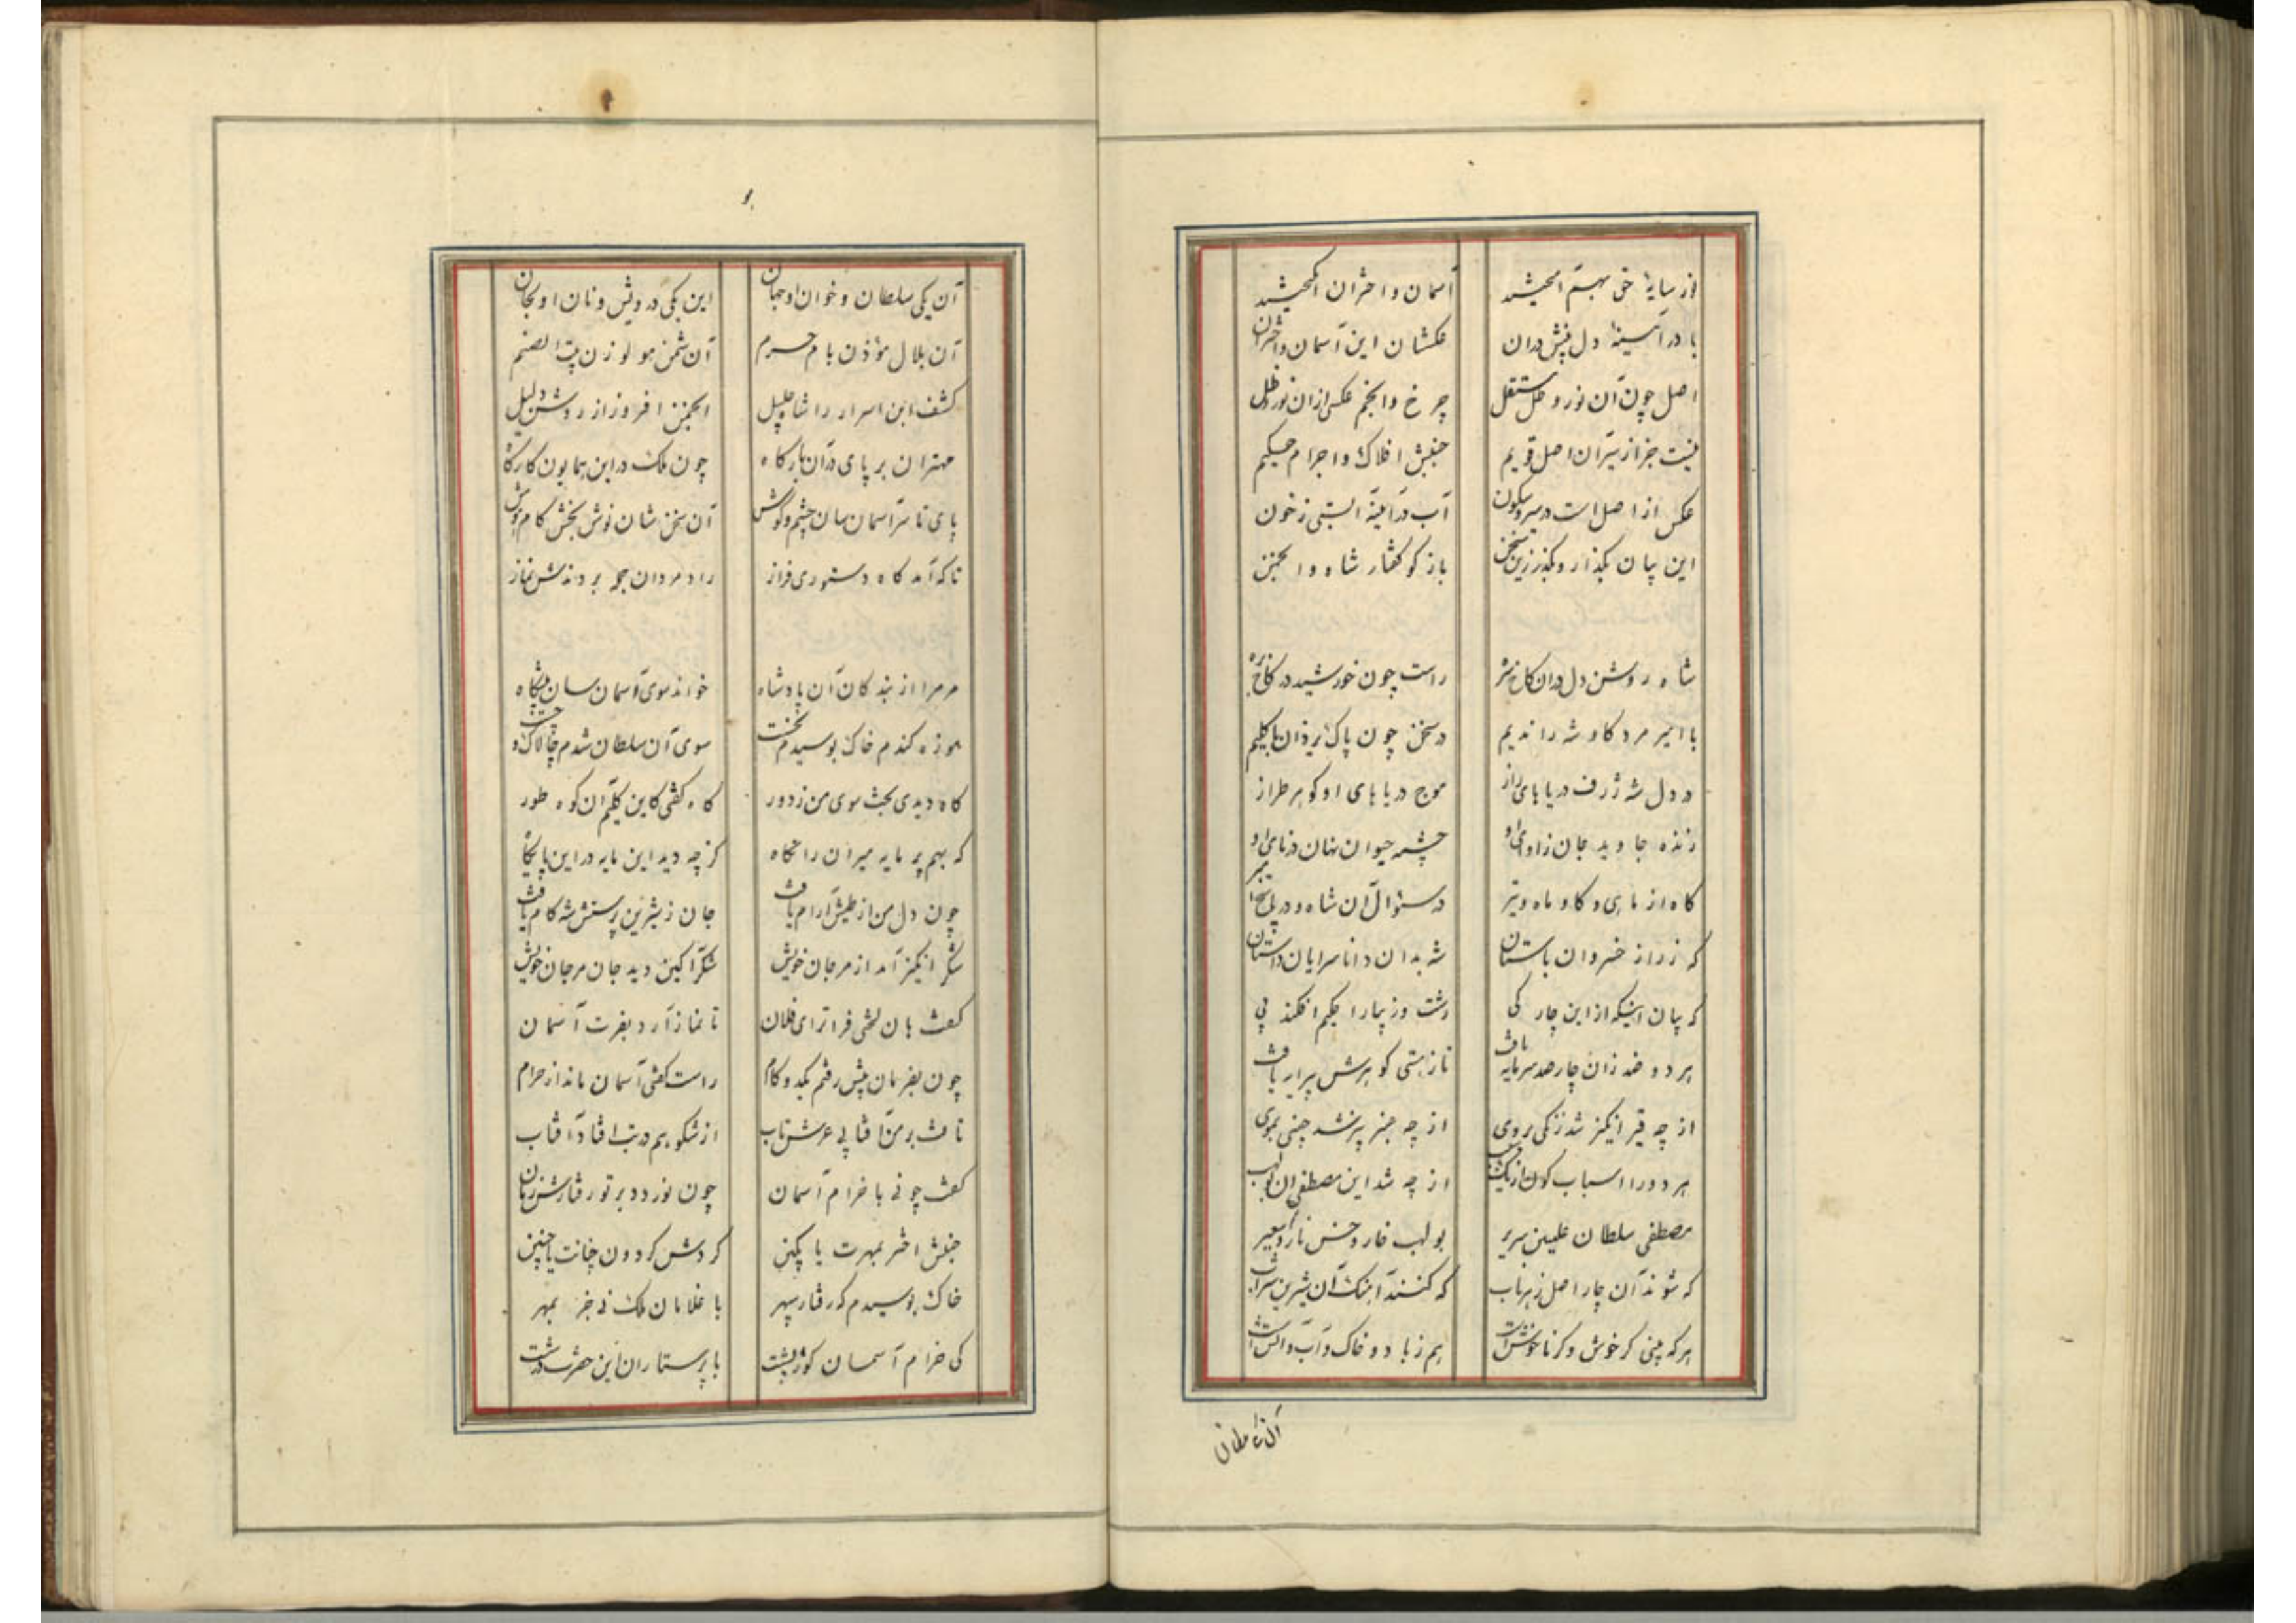 از سایهٔ حق بهم آمیختند آسمان و اختران انگیختند
با در آیینهٔ دل نقش دران عکشان این آسمان و اختران
اصل چون آن نور و ظل مستقل چرخ و انجم عکسی از آن نور و ظل
نیست جز از سیر آن اصل قویم جنبش افلاک و اجرام جسیم
عکس از اصل است در سیر و سکون آب در آیینهٔ
این بیان بگذار و بگذر زین سخن باز گو گفتار شاه و انجمن
شاه روشن دل در آن کاخ راست چون خورشید در کاخ بره
با امیر مرد کاو شه را ندیم در سخن چون پاک یزدان با کلیم
در دل شه ژرف دریاهای راز موج دریاهای او گوهر طراز
زنده جاوید جان ز آوای او چشمه حیوان نهان در نای او
گاه از ماهی و گاو و ماه و تیر در سؤال آن شاه و در پاسخ امیر
که ز راز خسروان باستان شه بدان دانا سرایان داستان
که بیان اینکه از این چار کی زشت و زیبا را حکیم افکند پی
هر دو ضد زان چار صد سرمایه یافت تا ز هستی گوهرش پیرایه یافت
از چه قیر انگیز شد زنگی بروی از چه عنبر بیز شد چینی بموی
هر دو را اسباب کون از یک از چه شد این مصطفی آن بولهب
مصطفی سلطان علیین سریر بولهب خار و خس نار و سعیر
که شوند آن چار اصل زهر ناب که کنند آهنگ آن شیرین شراب
هر که بینی گر خوش و گر ناخوش است هم ز باد و خاک و آب و آتش است
آن یکی سلطان
آن یکی سلطان و خوان او جهان این یکی درویش و نان او بجان
آن بلال مؤذن بام حرم آن شمن مولوزن بیت الصنم
کشف این اسرار را شاه جلیل انجمن افروز از روشن دلیل
مهتران بر پای در آن بارگاه چون ملک در این همایون کارگاه
پای تا سر آسمان سان چشم و گوش آن سخن شان نوش بخش کام هوش
تا که آمد گاه دستوری فراز راد مردان جو بردندش نماز
مر مرا از بندگان آن پادشاه خواند سوی آسمان سان پیشگاه
موزه کندم خاک بوسیدم نخست سوی آن سلطان شدم چالاک و چست
گاه دیدی بخت سوی من ز دور گاه گفتی کاین کلیم آن کوه طور
که بهم بر مایه میران را نگاه کز چه دید این مایه در این پایگاه
چون دل من از طیش آرام یافت جان ز شیرین پرسش شه کام یافت
شکر انگیز آمد از مرجان خویش شکر آکین دید جان مرجان خویش
گفت هان لختی فراتر ای فلان تا نماز آرد بفرت آسمان
چون بفرمان پیش رفتم یکدو گام راست گفتی آسمان ماند از خرام
تافت بر من آفتابی عرش تاب از شکوهم در تب افتاد آفتاب
گفت چونی با خرام آسمان چون نوردد بر تو رفتارش زمان
جنبش اختر بمهرت یا بکین گردش گردون چنانت یا چنین
خاک بوسیدم که رفتار سپهر با غلامان ملک نی جز بمهر
کی خرام آسمان کوژپشت با پرستاران این حضرت درشت